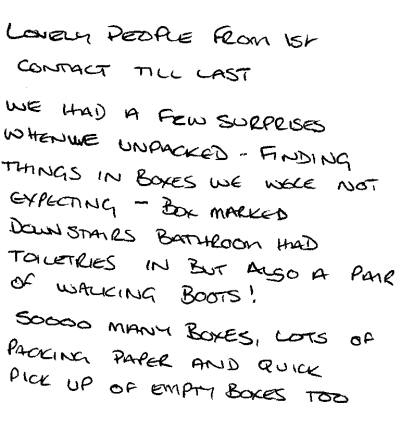 LOVELY PEOPLE FROM 1ST
CONTACT TILL LAST
WE HAD A FEW SURPRISES
WHEN WE UNPACKED - FINDING
THINGS IN BOXES WE WERE NOT
EXPECTING - BOX MARKED
DOWNSTAIRS BATHROOM HAD
TOILETRIES IN BUT ALSO A PAIR
OF WALKING BOOTS!
SOOOO MANY BOXES, LOTS OF
PACKING PAPER AND QUICK
PICK UP OF EMPTY BOXES TOO